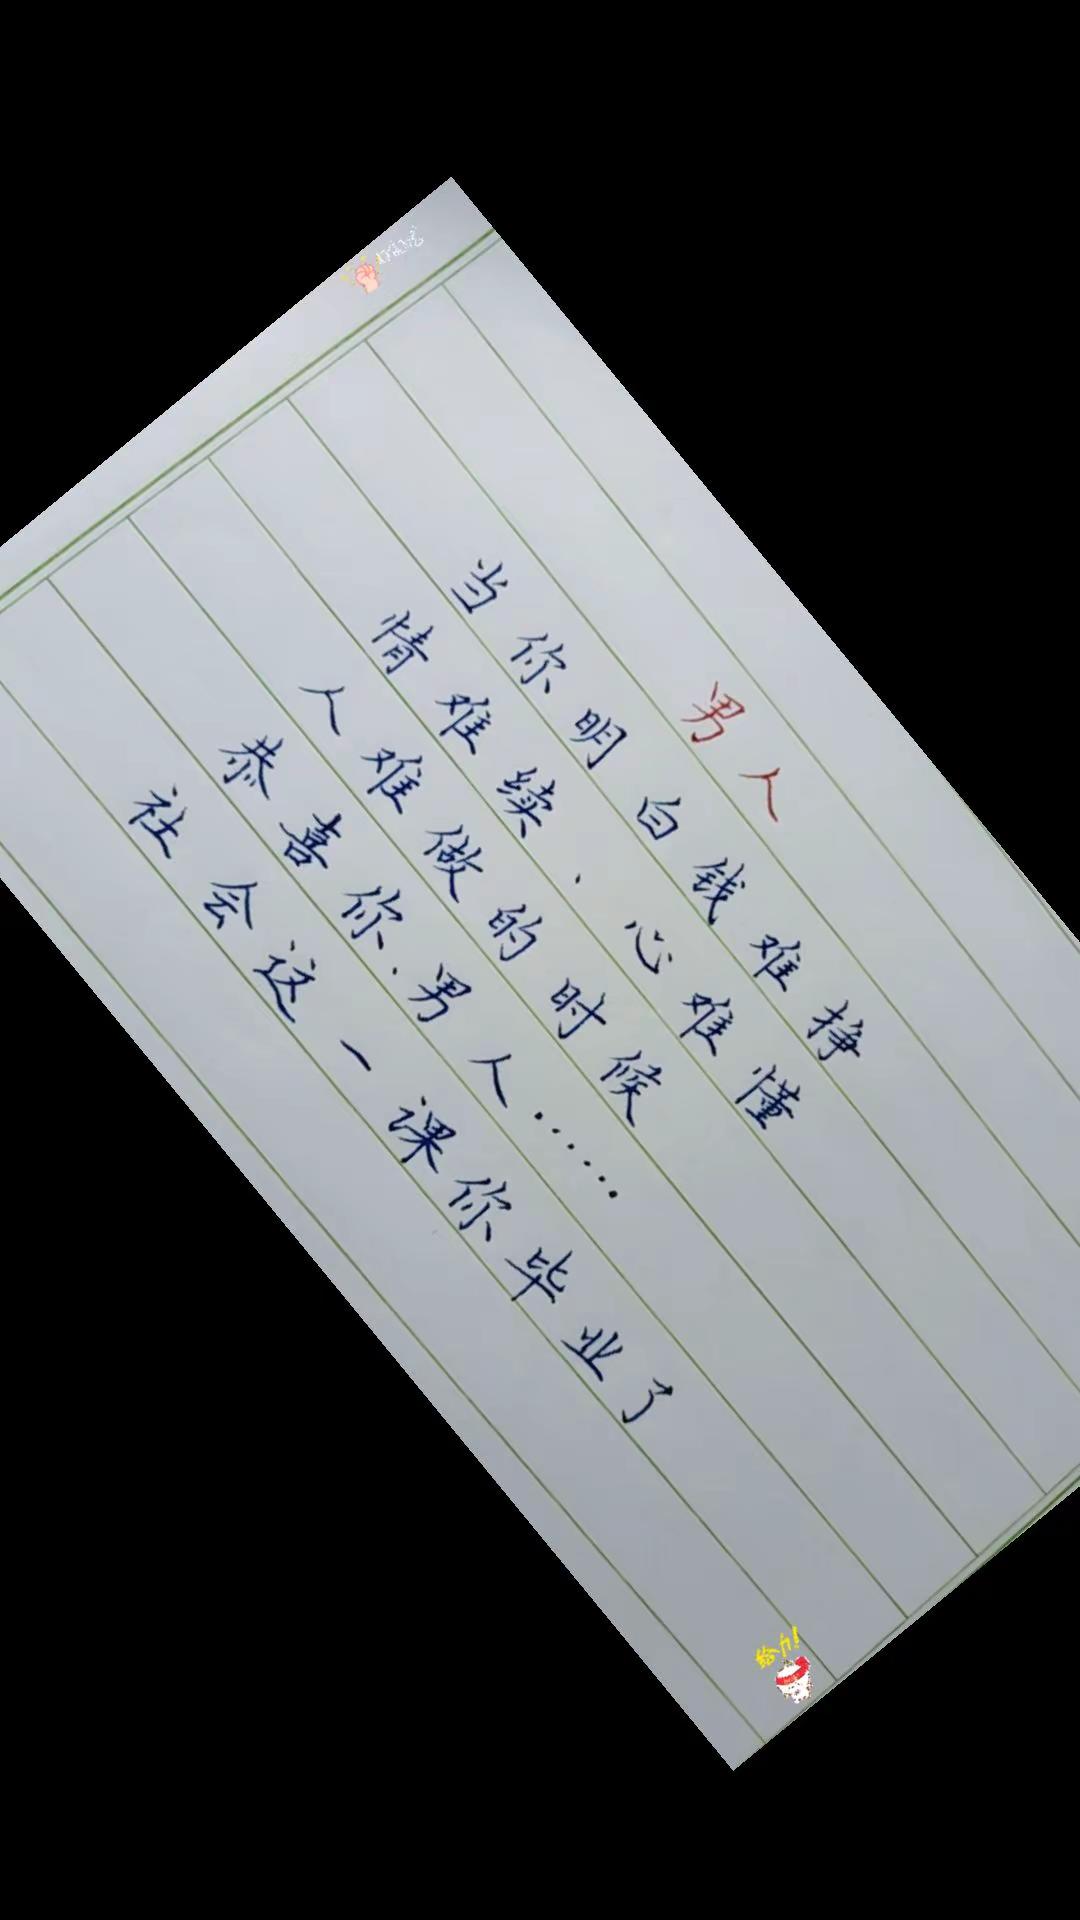 男人
当你明白钱难挣
情难续、心难懂
人难做的时候
恭喜你、男人……
社会这一课你毕业了
给力!